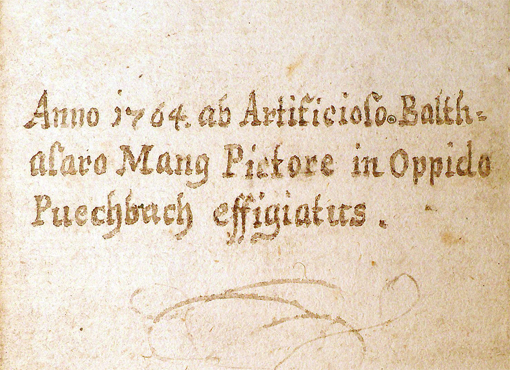 Anno 1764. ab Artificioſo. Balth=
aſaro Mang Pictore in Oppido
Puechbach effigiatus.